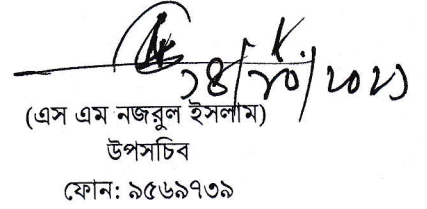 ১৪/১০/২০২১
(এস এম নজরুল ইসলাম)
উপসচিব
ফোন: ৯৫৬৯৭৩৯